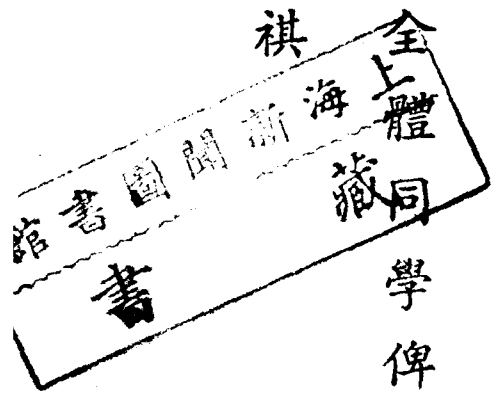 全體同學俾
祺
上海新聞圖書館
藏書